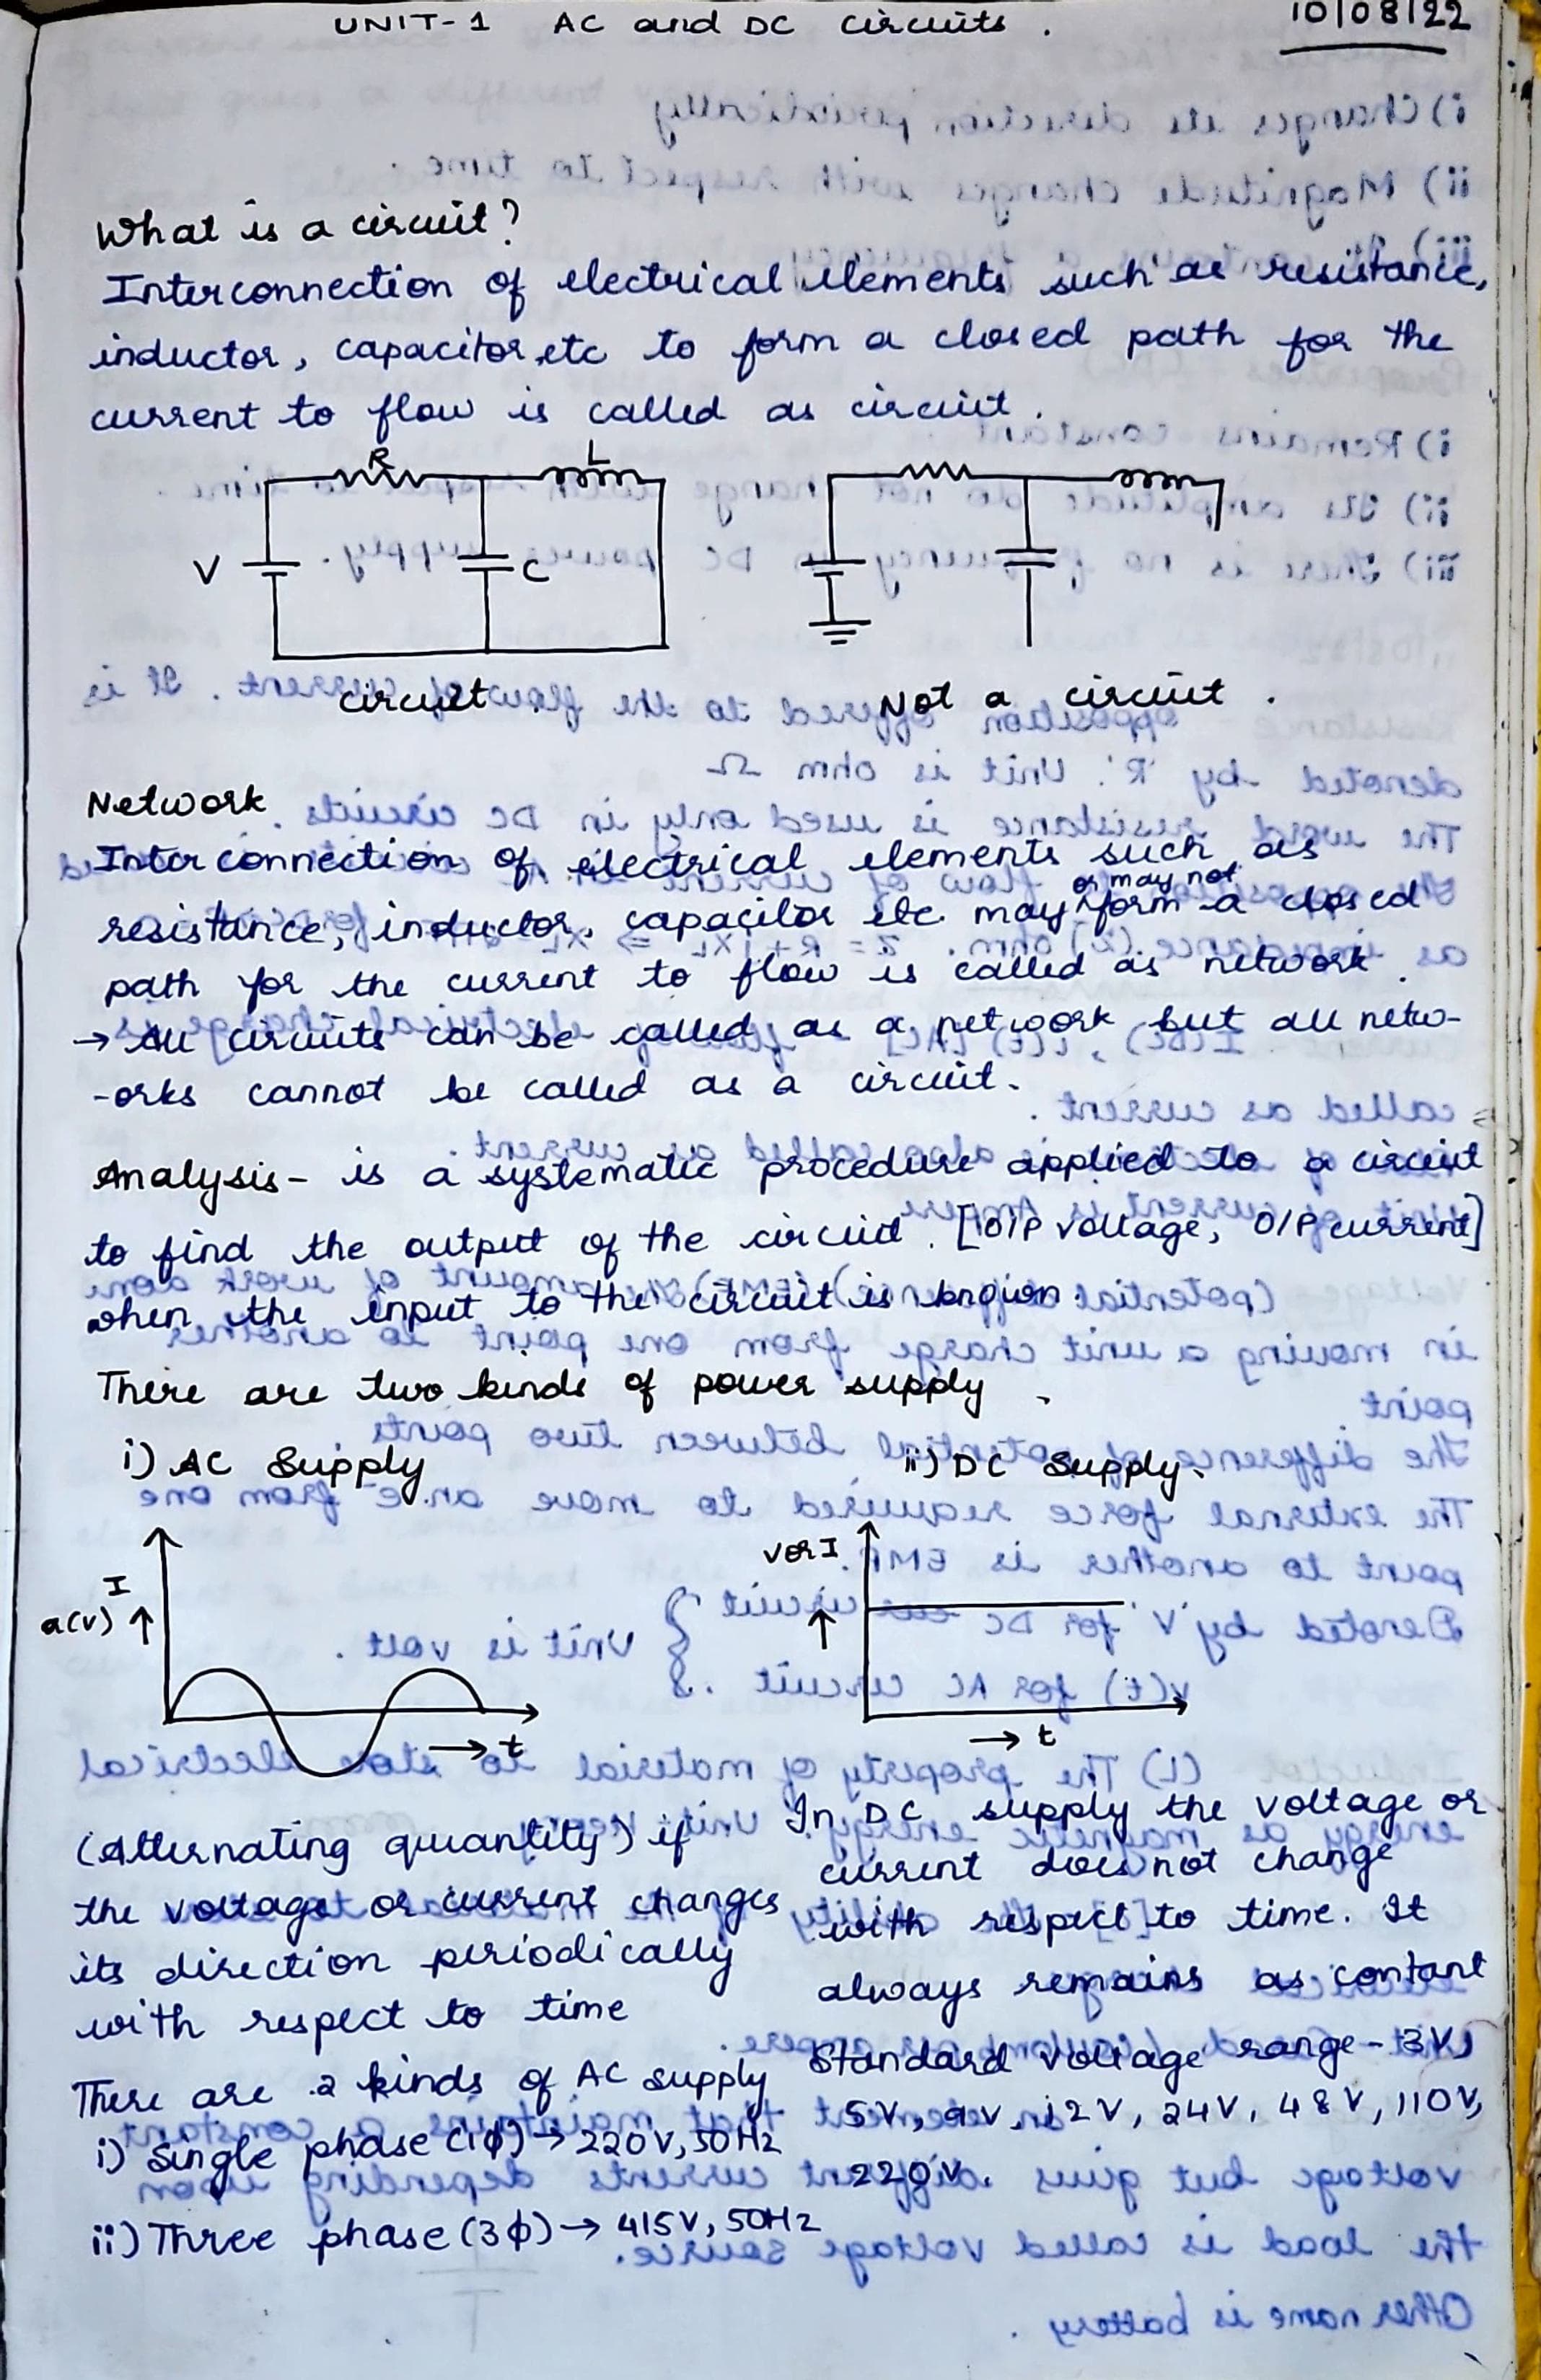 UNIT-1 AC and DC circuits.
10/08/22
What is a circuit?
Interconnection of electrical elements such as resistance,
inductor, capacitor, etc to form a closed path for the
current to flow is called as circuit.
R
L
V
C
circuit
Not a circuit.
Network
Interconnection of electrical elements such as
or may not
resistance, inductor, capacitor etc. may ^ form a closed
path for the current to flow is called as network.
→ All circuits can be called as a network but all netw-
-orks cannot be called as a circuit.
Analysis- is a systematic procedure applied to a circuit
to find the output of the circuit. [O/P voltage, O/P current]
when the input to the circuit is known.
There are two kinds of power supply.
i) AC Supply
ii) DC Supply.
I
a(v) ↑
→ t
V or I
↑
→ t
(Alternating quantity) if
the voltage or current changes
its direction periodically
with respect to time
There are 2 kinds of AC supply
i) Single phase (1ϕ) → 220V, 50Hz
ii) Three phase (3ϕ) → 415V, 50Hz
In DC supply the voltage or
current does not change
with respect to time. It
always remains as contant
Standard voltage range - 3V,
5V, 9V, 12V, 24V, 48V, 110V,
220V.